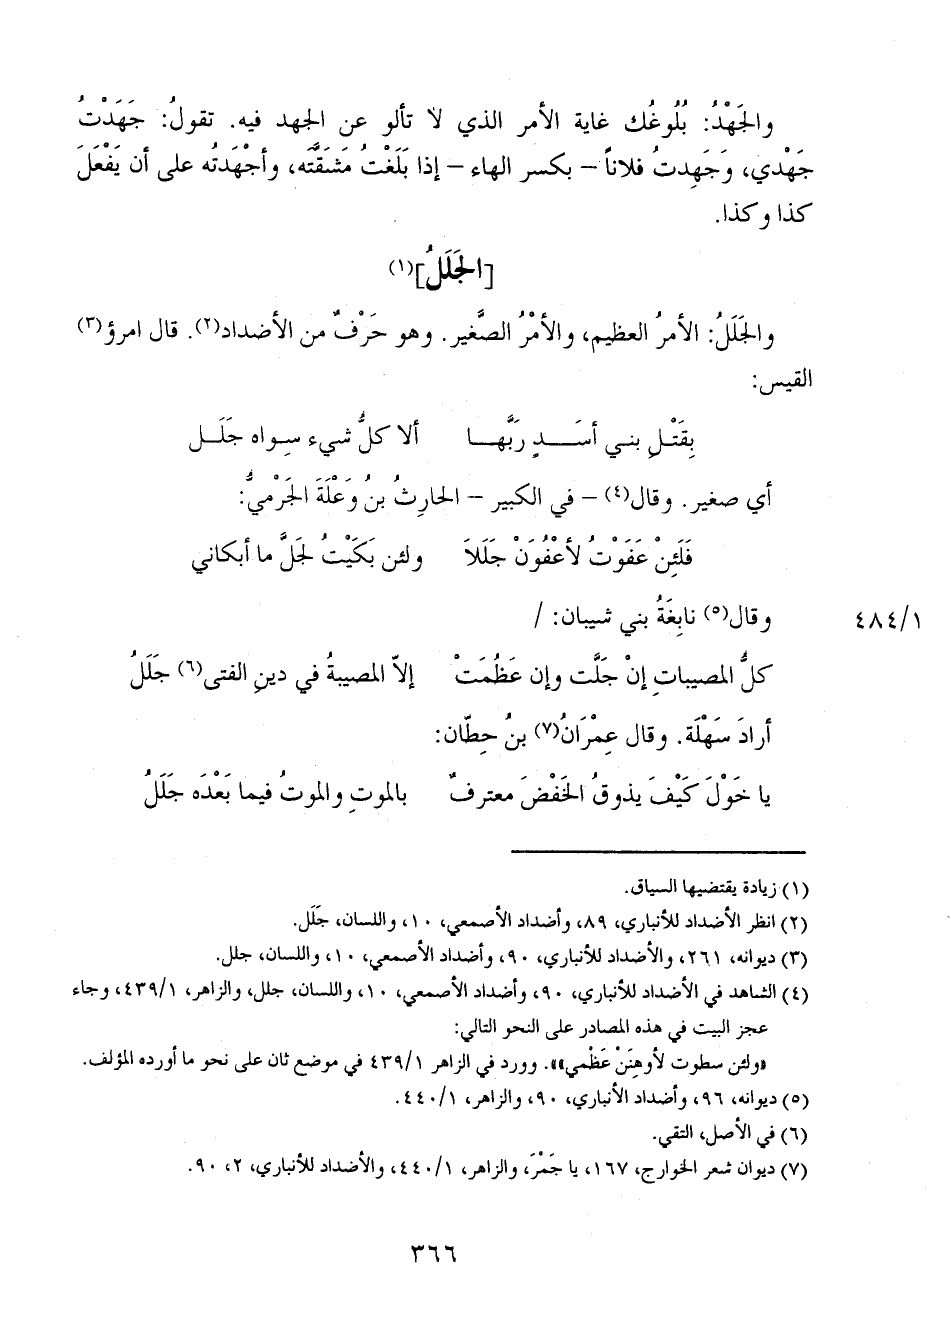 والجَهْدُ: بُلُوغُك غاية الأمر الذي لا تألو عن الجهد فيه. تقولُ: جَهَدْتُ
جَهْدي، وَجَهِدتُ فلاناً – بكسر الهاء – إذا بَلَغْتُ مَشَقَّتَه، وأجْهَدتُه على أن يَفْعَلَ
كذا وكذا.
[الجَلَلُ](١)
والجَلَلُ: الأمرُ العظيم، والأمْرُ الصَّغير. وهو حَرْفٌ من الأضداد(٢). قال امرؤ(٣)
القيس:
بِقَتْلِ بني أسَـــدٍ رَبَّهــا ألا كلُّ شيء سِواه جَلَـل
أي صغير. وقال(٤) – في الكبير – الحارثُ بنُ وَعْلَةَ الجَرْميُّ:
فَلَئِنْ عَفَوْتُ لأعْفُوَنْ جَلَلاَ ولئن بَكَيْتُ لجَلَّ ما أبكاني
وقال(٥) نابِغَةُ بني شيبان: /
٤٨٤/١
كلُّ المصيباتِ إنْ جَلَّت وإن عَظُمَتْ إلاّ المصيبةُ في دينِ الفتى(٦) جَلَلُ
أرادَ سَهْلَة. وقال عِمْرَانُ(٧) بنُ حِطّان:
يا خَوْلَ كَيْفَ يذوقُ الخَفْضَ معترفٌ بالموتِ والموتُ فيما بَعْدَه جَلَلُ
(١) زيادة يقتضيها السياق.
(٢) انظر الأضداد للأنباري، ٨٩، وأضداد الأصمعي، ١٠، واللسان، جَلَل.
(٣) ديوانه، ٢٦١، والأضداد للأنباري، ٩٠، وأضداد الأصمعي، ١٠، واللسان، جلل.
(٤) الشاهد في الأضداد للأنباري، ٩٠، وأضداد الأصمعي، ١٠، واللسان، جلل، والزاهر، ٤٣٩/١، وجاء
عجز البيت في هذه المصادر على النحو التالي:
«ولئن سطوت لأوهِنَنْ عَظْمي»». وورد في الزاهر ٤٣٩/١ في موضع ثان على نحو ما أورده المؤلف.
(٥) ديوانه، ٩٦، وأضداد الأنباري، ٩٠، والزاهر، ٤٤٠/١.
(٦) في الأصل، التقي.
(٧) ديوان شعر الخوارج، ١٦٧، يا جَمْرَ، والزاهر، ٤٤٠/١، والأضداد للأنباري، ٢، ٩٠.
٣٦٦